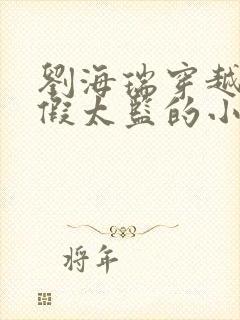 劉海瑞穿越
假太監的小
將年